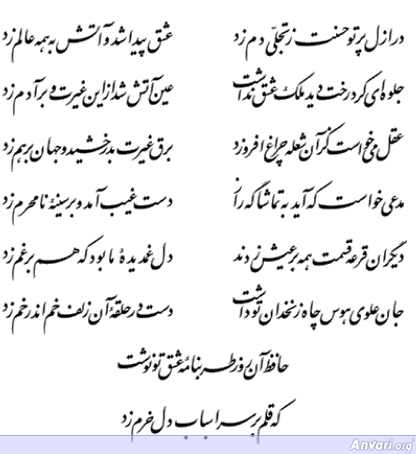 در ازل پرتو حسنت ز تجلّی دم زد عشق پیدا شد و آتش به همه عالم زد
جلوه‌ای کرد رخت دید ملک عشق نداشت عین آتش شد از این غیرت و بر آدم زد
عقل می‌خواست کز آن شعله چراغ افروزد برق غیرت بدرخشید و جهان برهم زد
مدعی خواست که آید به تماشاگه راز دست غیب آمد و بر سینهٔ نامحرم زد
دیگران قرعه قسمت همه بر عیش زدند دل غمدیدهٔ ما بود که هم بر غم زد
جان علوی هوس چاه زنخدان تو داشت دست در حلقهٔ آن زلف خم اندر خم زد
حافظ آن روز طربنامهٔ عشق تو نوشت
که قلم بر سر اسباب دل خرم زد
Anvari.org